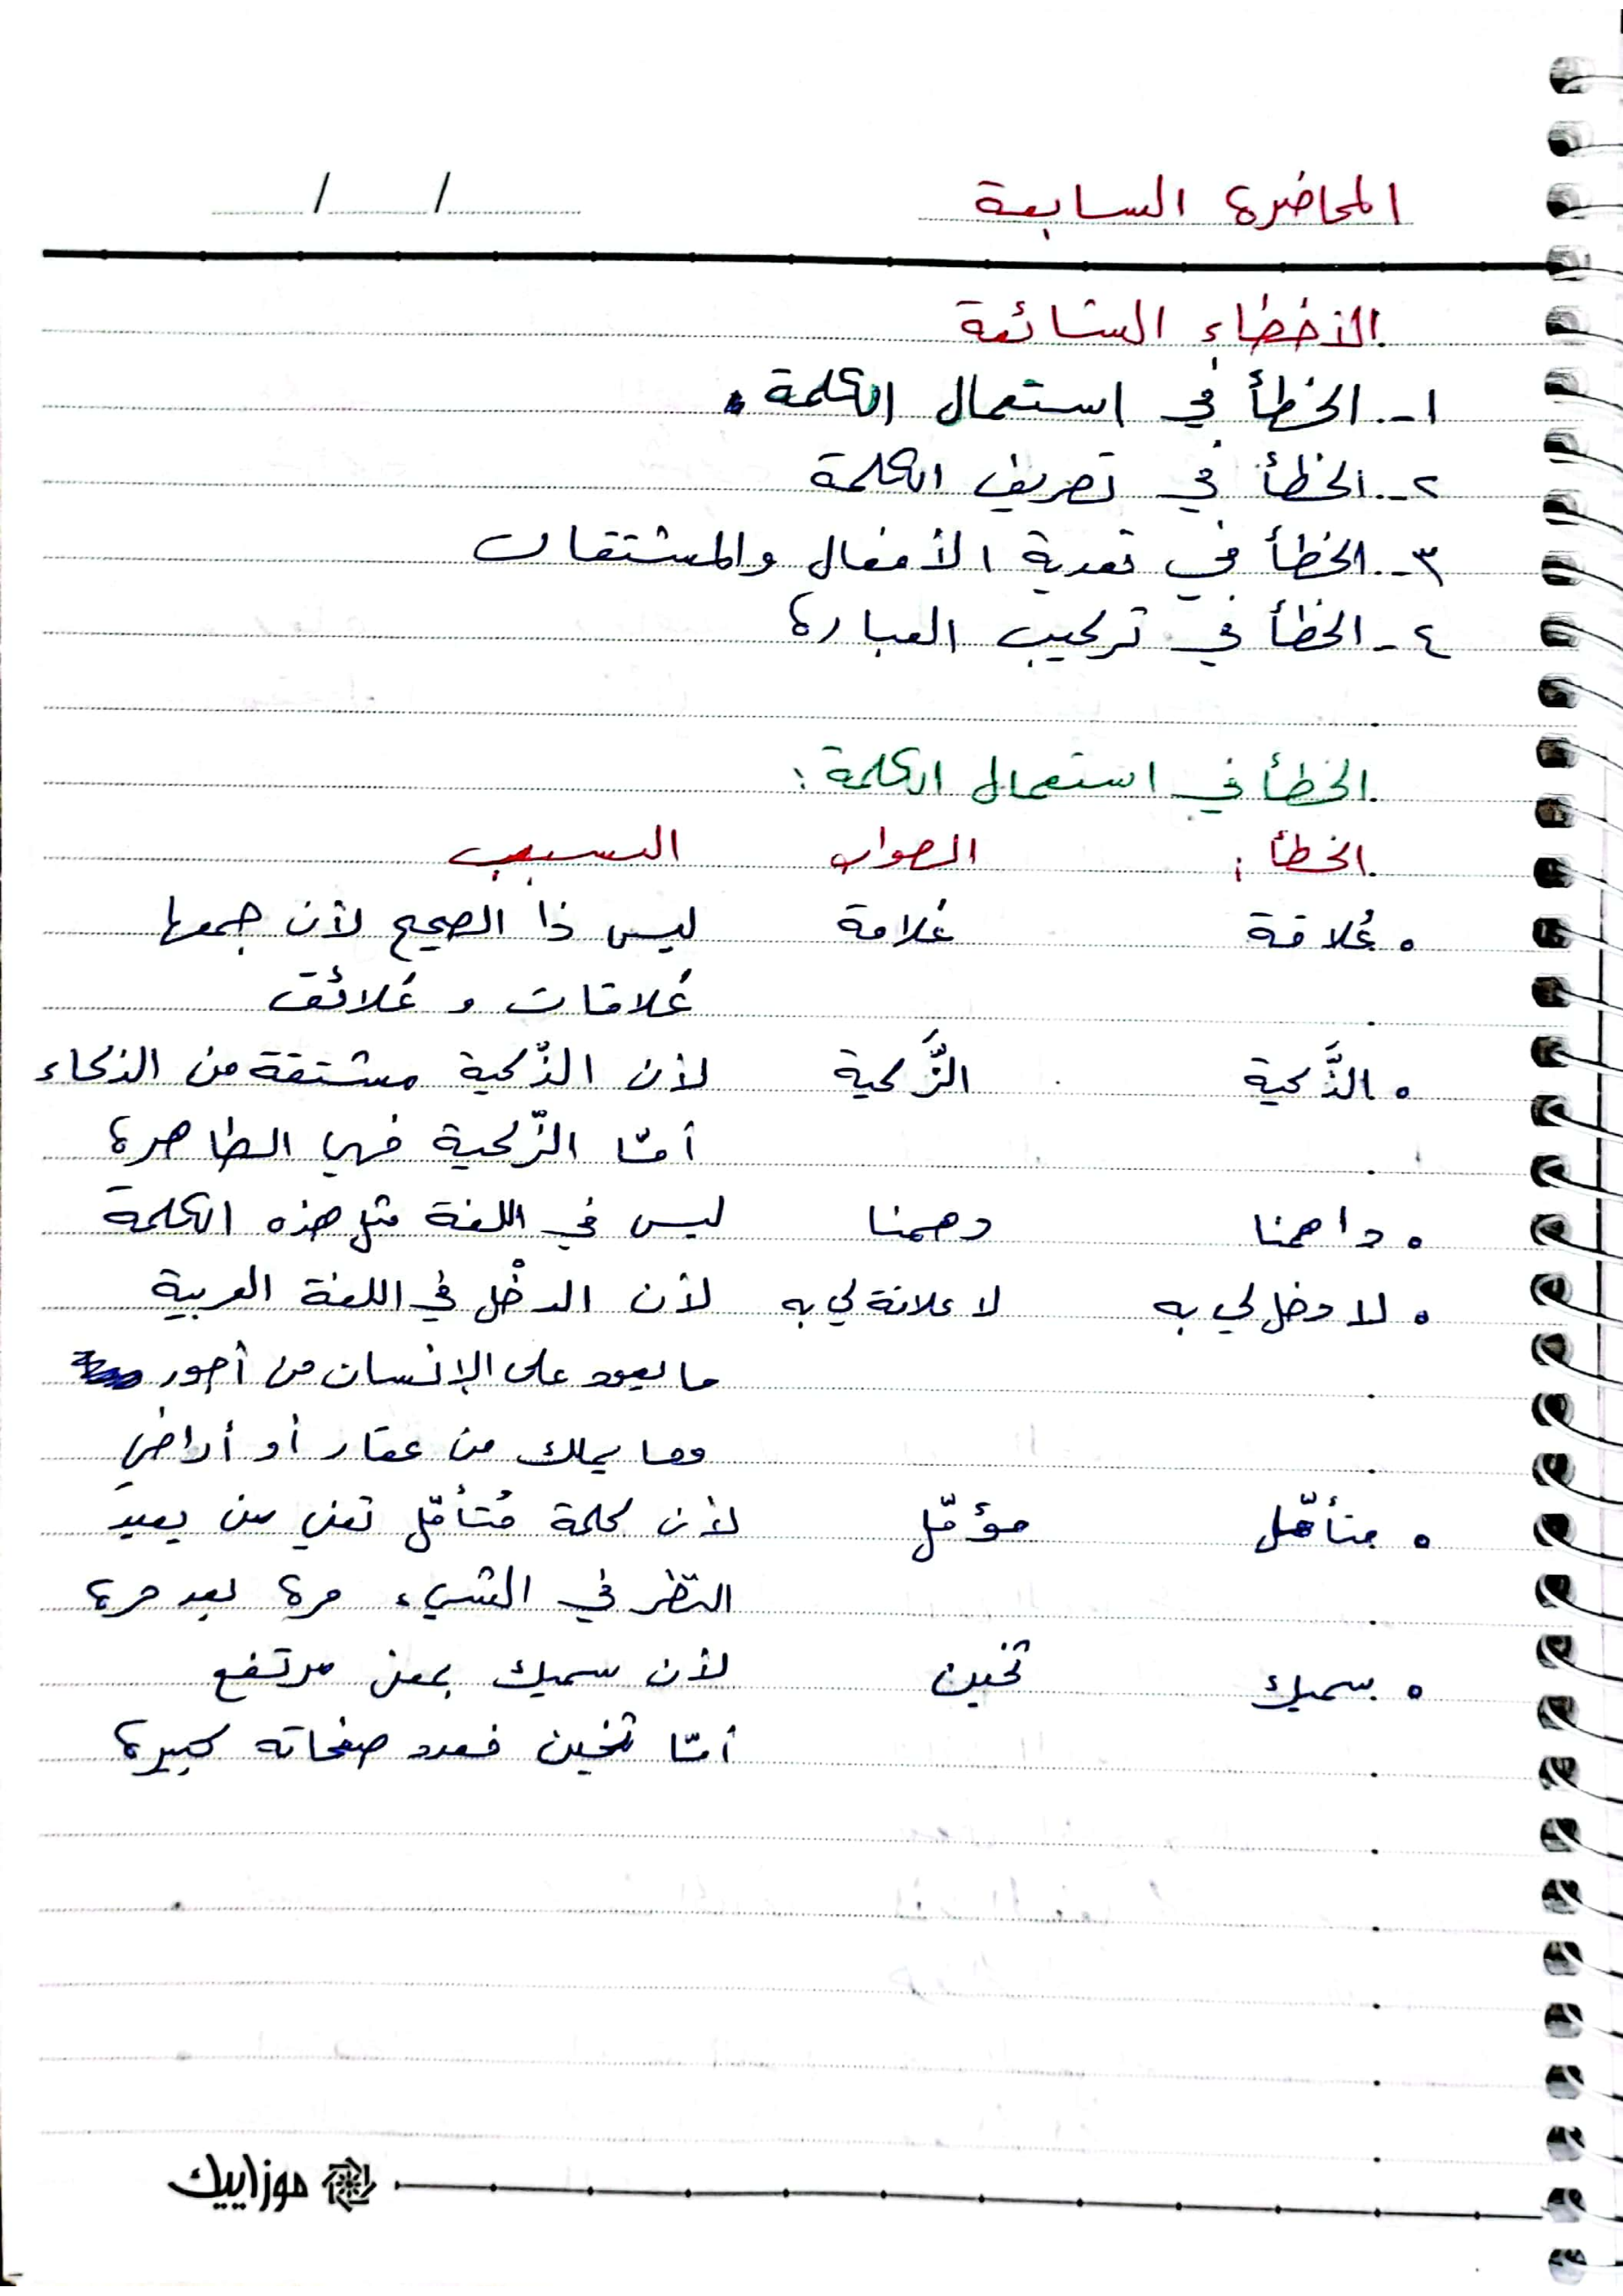 المحاضرة السابعة
/ /
الأخطاء الشائعة
١- الخطأ في استعمال الكلمة.
٢- الخطأ في تصريف الكلمة
٣- الخطأ في تعدية الأفعال والمشتقات
٤- الخطأ في تركيب العبارة
الخطأ في استعمال الكلمة:
الخطأ: الصواب السبب
• عُلاقة عَلاقة ليس ذا الصحيح لأن جمعها
عَلاقات و عَلائق
• الذَّكية الزَّكية لأن الذّكية مشتقة من الذكاء
أمّا الزّكية فهي الطاهرة
• داهمنا دهمنا ليس في اللغة مثل هذه الكلمة
• لا دخل لي به لا علاقة لي به لأن الدخْل في اللغة العربية
ما يعود على الإنسان من أجور
وما يملك من عقار أو أراضي
• متأمّل مؤمّل لأن كلمة مُتأمّل تعني من يعيد
النظر في الشيء مرة بعد مرة
• سميك ثخين لأن سميك بمعنى مرتفع
أمّا ثخين فعدد صفحاته كبيرة
موزاييك